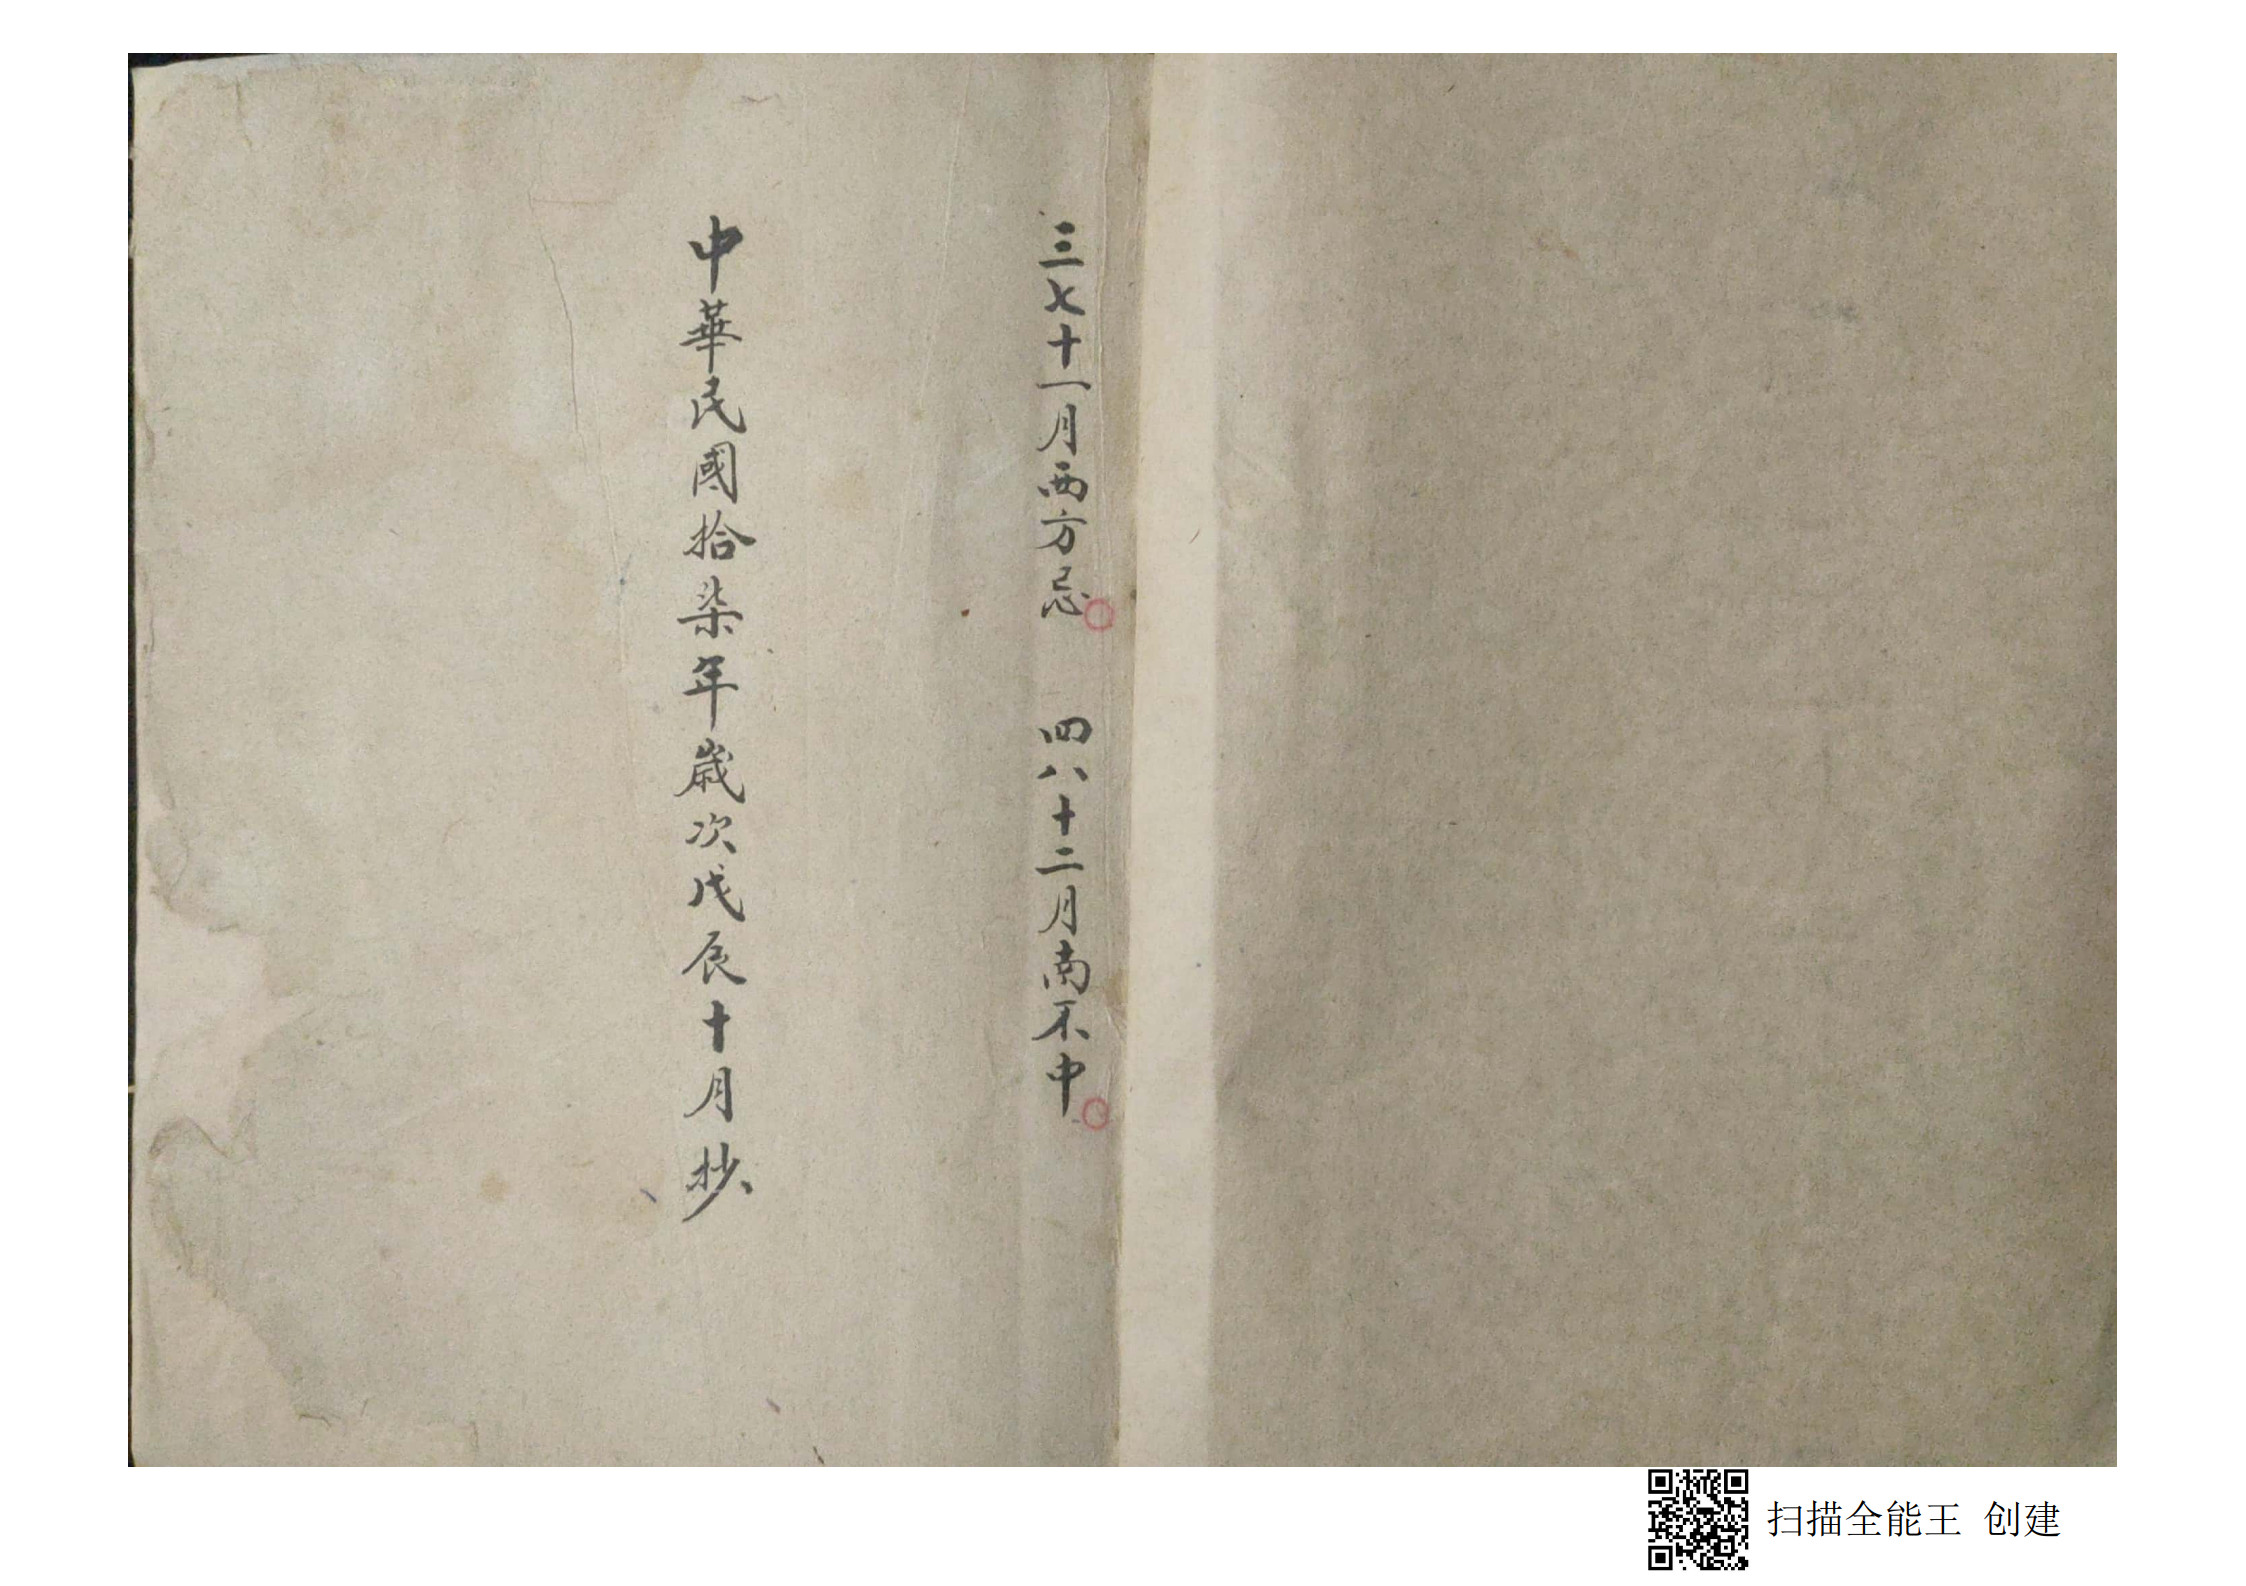 三七十一月西方忌○　四八十二月南不中○
中華民國拾柒年歲次戊辰十月抄
扫描全能王 创建